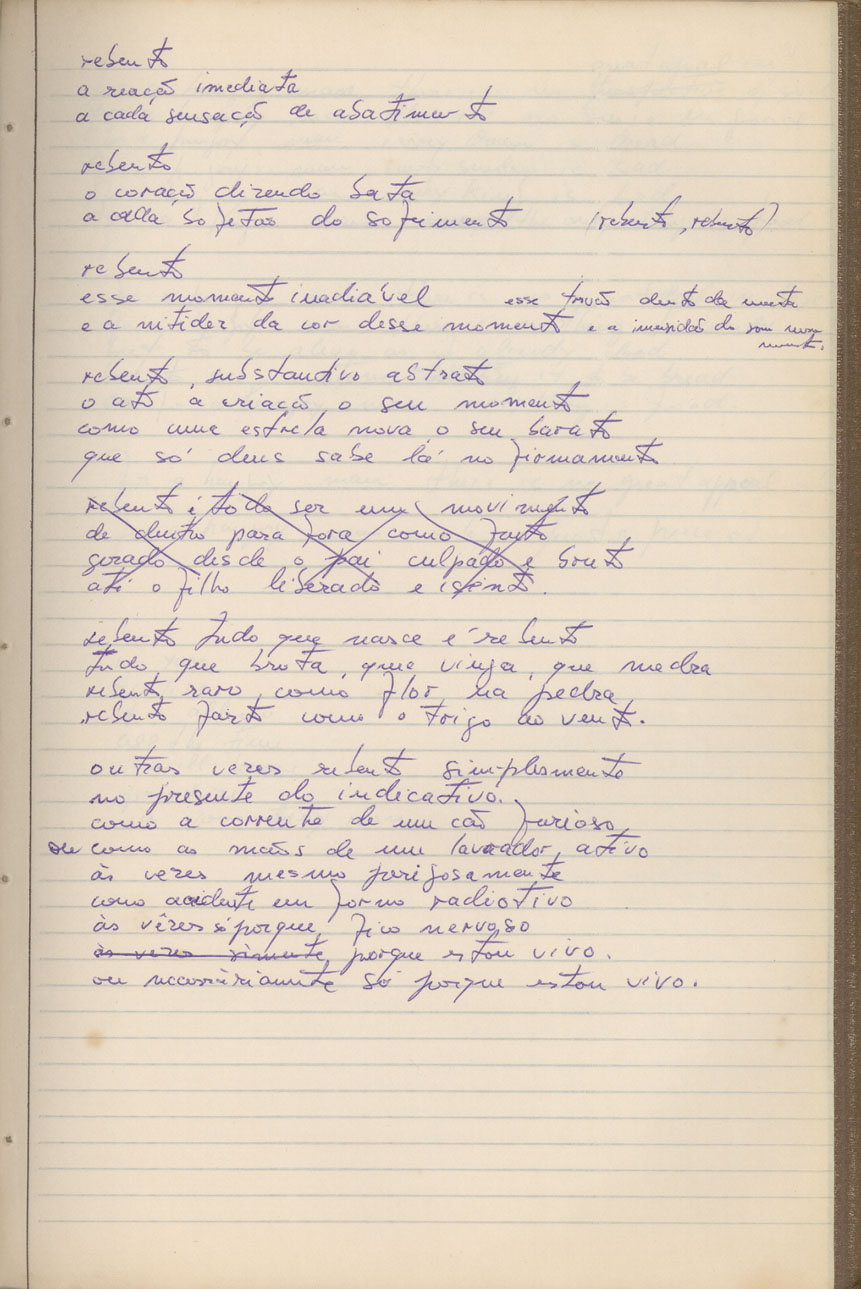 rebento
a reação imediata
a cada sensação de abatimento
rebento
o coração dizendo bata
a cada bofetão do sofrimento (rebento, rebento)
rebento
esse momento inadiável esse trovão dentro da mata
e a nitidez da cor desse momento e a imensidão do som nesse momento.
rebento, substantivo abstrato
o ato a criação o seu momento
como uma estrela nova o seu barato
que só deus sabe lá no firmamento
rebento é todo ser em movimento
de dentro para fora como farto
gerado desde o pai culpado e bruto
até o filho liberado e isento.
rebento tudo que nasce é rebento
tudo que brota, que vinga, que medra
rebento raro como flor na pedra
rebento farto como o trigo ao vento.
outras vezes rebento simplesmente
no presente do indicativo.
como a corrente de um cão furioso
ou como as mãos de um lavrador ativo
às vezes mesmo perigosamente
como acidente em forno radiotivo
às vêzes só porque fico nervoso
às vezes somente porque estou vivo.
ou necessariamente só porque estou vivo.